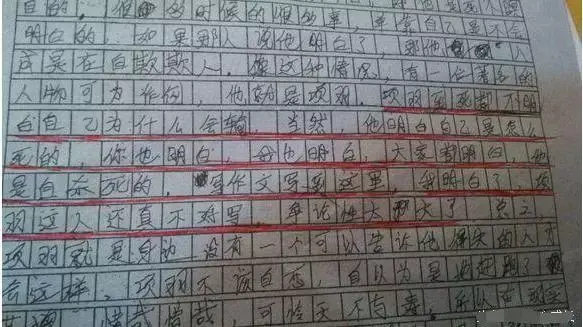 自的，很多时候的很多事，单靠自己是不会
明白的，如果那人说他明白了，那他
成是在自欺欺人。这种情况，有一位著名的
人物可为作例，他就是项羽。项羽到死都不明
白自己为什么会输，当然，他明白自己是怎么
死的，你也明白，我也明白，大家都明白，他
是自杀死的，写作文写到这里，我明白了，项
羽这人还真不好写，争论性太大了，总之
项羽就是身边没有一个可以告诉他得失的人才
会这样，项羽不该自恋，自以为是
惜哉惜哉，可怜天不